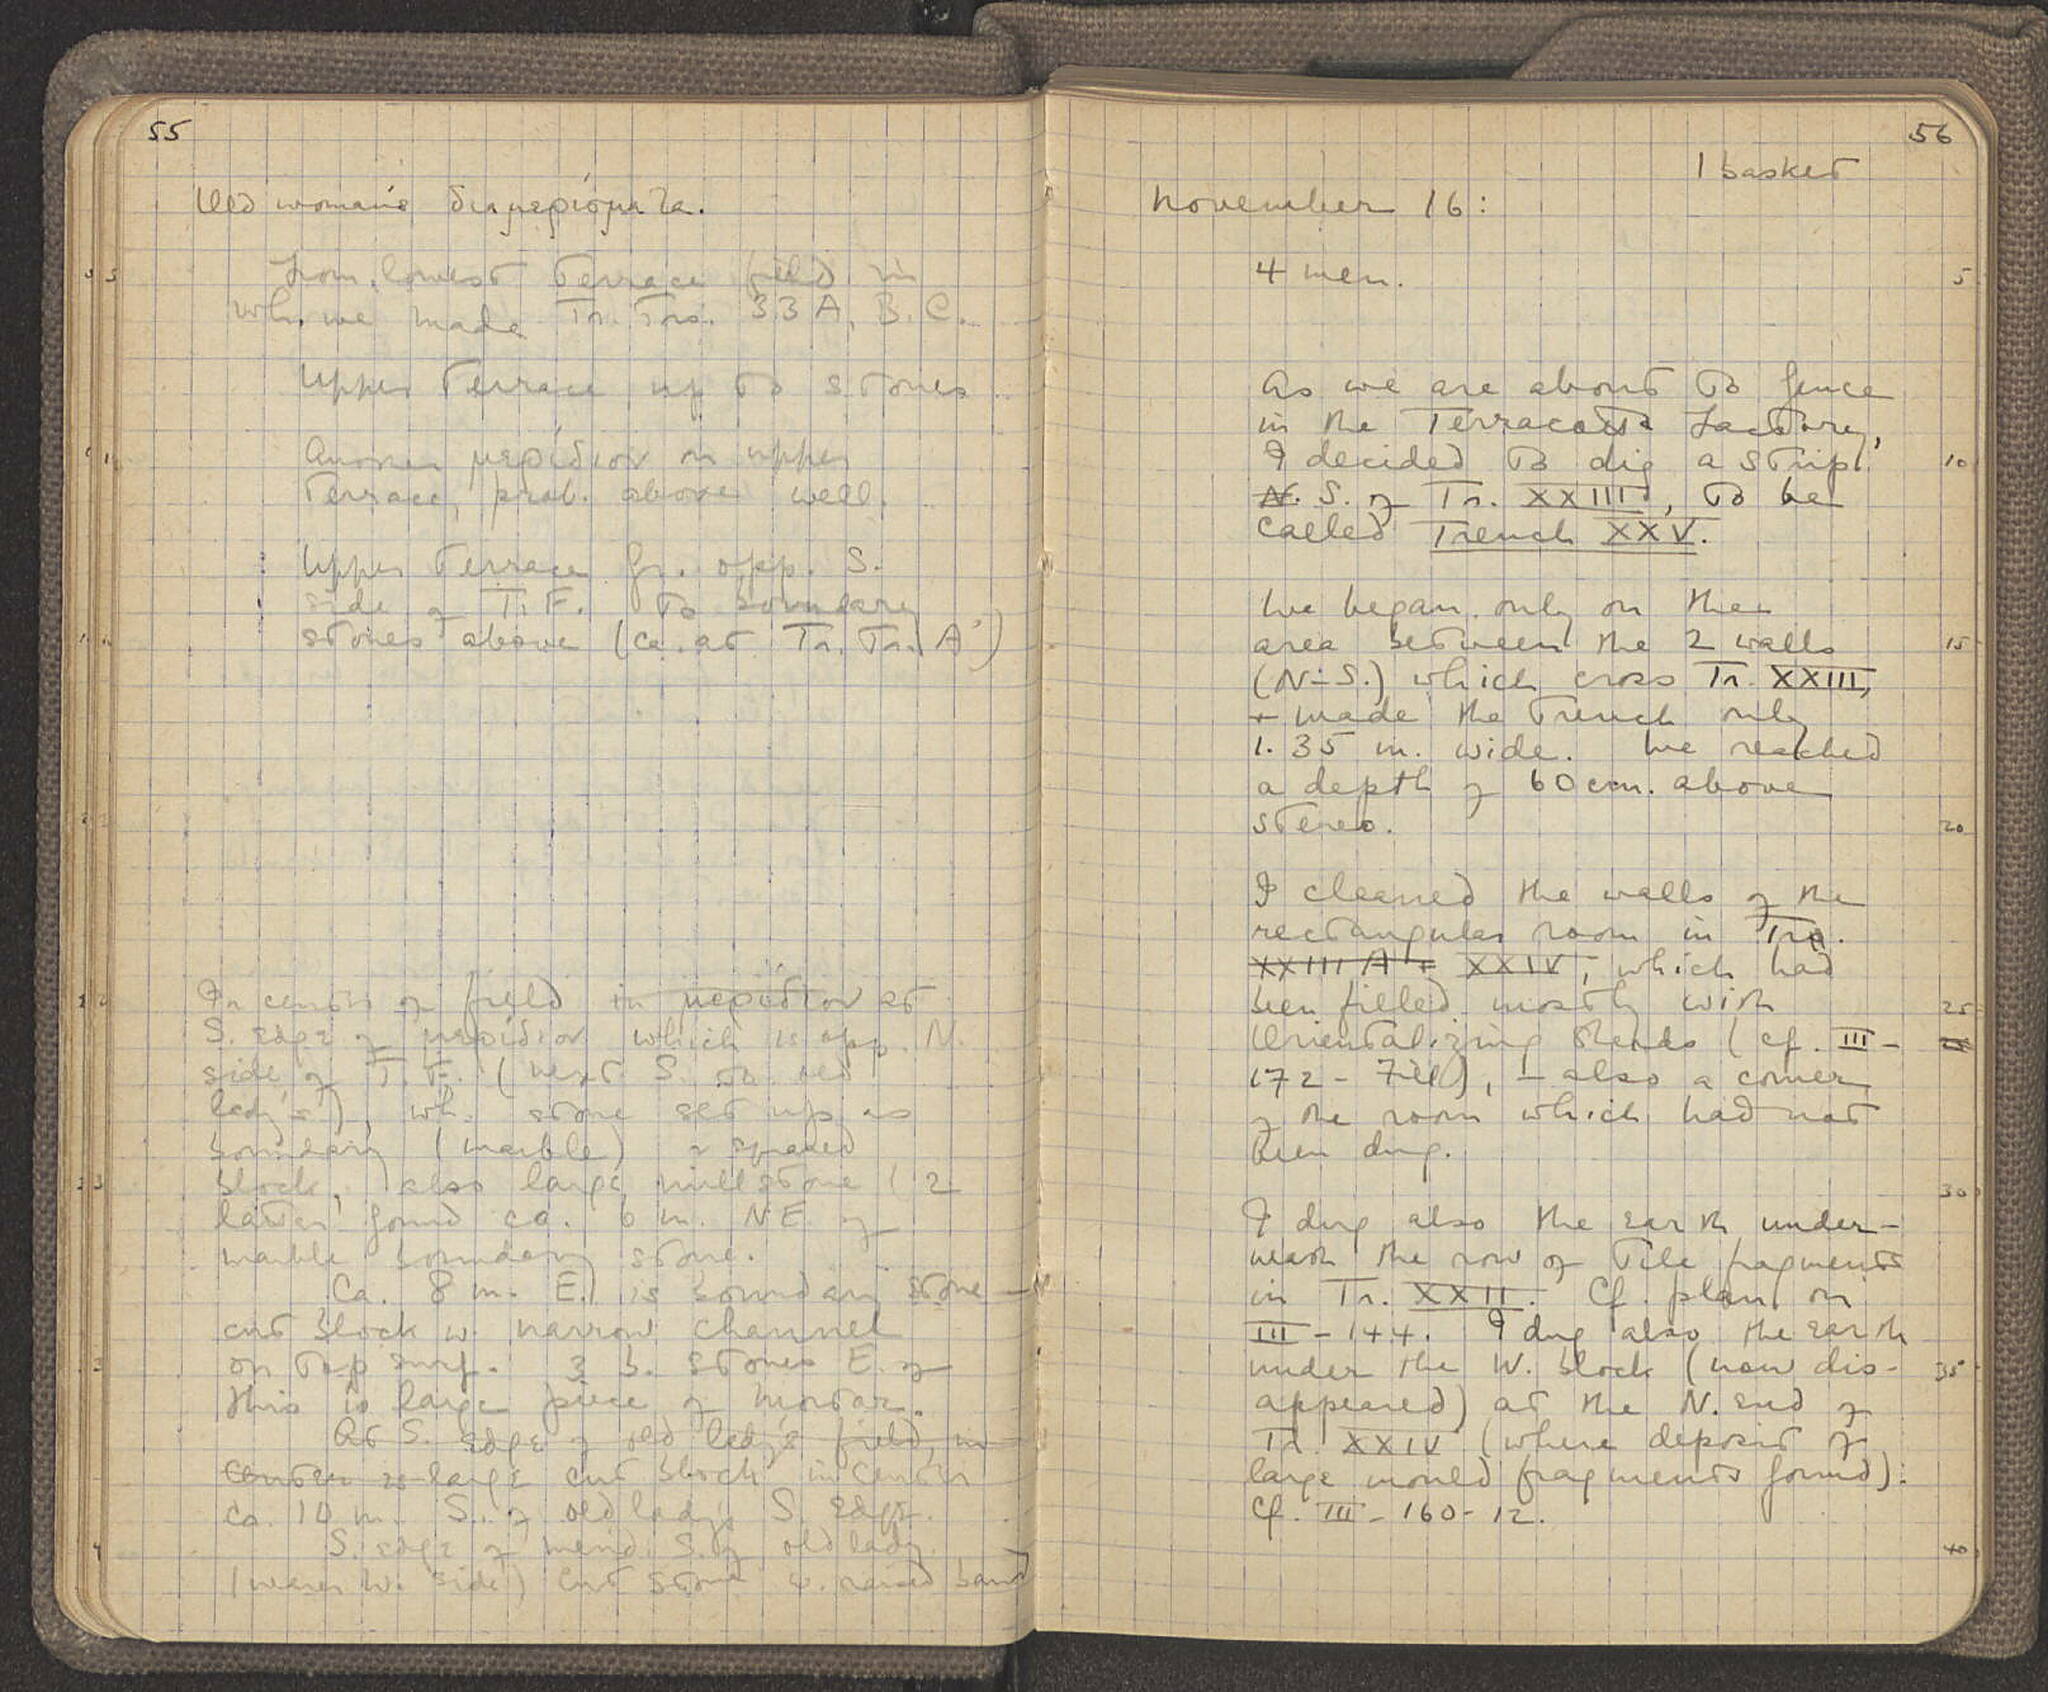 55
Old woman's διαμερίσματα.
From lowest terrace field in
wh. we made Tr. Trs. 33 A, B. C.
Upper terrace up to stones
Another μερίδιον on upper
terrace, prob. above well.
Upper terrace fr. opp. S.
side of T.F. to boundary
stones above (ca. at Tr. Tr. A')
In center of field in μερίδιον at
S. edge of μερίδιον which is opp. N.
side of T.F. (next S. to old
lady's), wh. stone set up as
boundary (marble) squared
block, also large millstone (2
latter found ca. 6 m. NE of
marble boundary stone.
Ca. 8 m. E. is boundary stone –
cut block w. narrow channel
on top surf. 3 b. stones E. of
this is large piece of mortar.
At S. edge of old lady's field, in
center is large cut block in center
ca. 10 m. S. of old lady's S. edge.
S. edge of merid. S. of old lady
(nearer W. side) cut stone w. raised band
56
1 basket
November 16:
4 men.
5
As we are about to fence
in the Terracotta Factory,
I decided to dig a strip
10
N. S. of Tr. XXIII, to be
called Trench XXV.
We began only on the
area between the 2 walls
15
(N-S.) which cross Tr. XXIII,
+ made the trench only
1.35 m. wide. We reached
a depth of 60 cm. above
stereo.
20
I cleaned the walls of the
rectangular room in Tr.
XXIII A + XXIV, which had
been filled mostly with
25
Orientalizing sherds (cf. III-
172 - Fill), – also a corner
of the room which had not
been dug.
30
I dug also the earth under-
neath the row of tile fragments
in Tr. XXII. Cf. plan on
III - 144. I dug also the earth
under the W. block (now dis-
35
appeared) at the N. end of
Tr. XXIV (where deposit of
large mould fragments found).
Cf. III - 160 - 12.
40